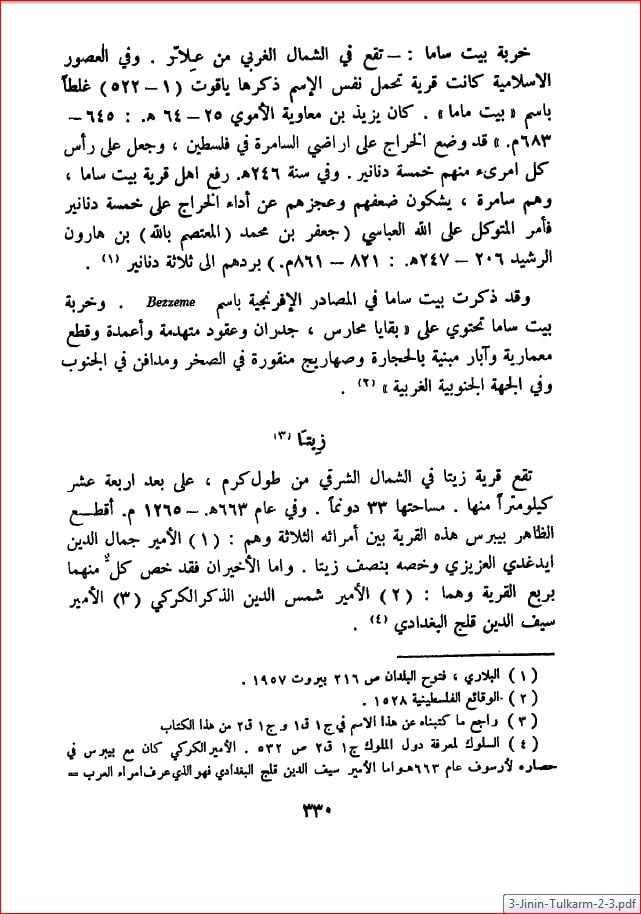 خربة بيت ساما : – تقع في الشمال الغربي من عِلاّر . وفي العصور
الاسلامية كانت قرية تحمل نفس الإسم ذكرها ياقوت ( ١ – ٥٢٢ ) غلطاً
باسم « بيت ماما » . كان يزيد بن معاوية الأموي ٢٥ – ٦٤ هـ . : ٦٤٥ –
٦٨٣م . » قد وضع الخراج على اراضي السامرة في فلسطين ، وجعل على رأس
كل امرىء منهم خمسة دنانير . وفي سنة ٢٤٦هـ. رفع اهل قرية بيت ساما ،
وهم سامرة ، يشكون ضعفهم وعجزهم عن أداء الخراج على خمسة دنانير
فأمر المتوكل على الله العباسي ( جعفر بن محمد ( المعتصم بالله ) بن هارون
الرشيد ٢٠٦ – ٢٤٧هـ. : ٨٢١ – ٨٦١م.) بردهم الى ثلاثة دنانير (١) .
وقد ذكرت بيت ساما في المصادر الإفرنجية باسم Bezzeme . وخربة
بيت ساما تحتوي على « بقايا محارس ، جدران وعقود متهدمة وأعمدة وقطع
معمارية وآبار مبنية بالحجارة وصهاريج منقورة في الصخر ومدافن في الجنوب
وفي الجهة الجنوبية الغربية » (٢) .
زيتا (٣)
تقع قرية زيتا في الشمال الشرقي من طول كرم ، على بعد اربعة عشر
كيلومتراً منها . مساحتها ٣٣ دونماً . وفي عام ٦٦٣هـ. – ١٢٦٥ م. أقطع
الظاهر بيبرس هذه القرية بين أمرائه الثلاثة وهم : ( ١ ) الأمير جمال الدين
ايدغدي العزيزي وخصه بنصف زيتا . واما الأخيران فقد خص كلٌ منهما
بربع القرية وهما : ( ٢ ) الأمير شمس الدين الذكر الكركي ( ٣ ) الأمير
سيف الدين قلج البغدادي (٤) .
( ١ ) البلاري ، فتوح البلدان ص ٢١٦ بيروت ١٩٥٧ .
( ٢ ) الوقائع الفلسطينية ١٥٢٨ .
( ٣ ) راجع ما كتبناه عن هذا الاسم في ج١ ق١ و ج١ ق٢ من هذا الكتاب
( ٤ ) السلوك لمعرفة دول الملوك ج١ ق٢ ص ٥٣٢ . الأمير الكركي كان مع بيبرس في
حصاره لأرسوف عام ٦٦٣هـ واما الأمير سيف الدين قلج البغدادي فهو الذي عرف امراء العرب =
٣٣٠
3-Jinin-Tulkarm-2-3.pdf